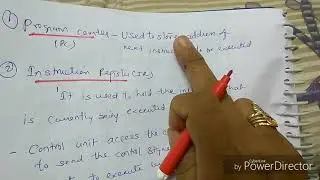 ① Program counter – Used to store address of
(PC) next instruction to be executed
② Instruction Register (IR)
It is used to hold the that
is currently being executed
- Control unit access the
to send the control
to execute
by PowerDirector